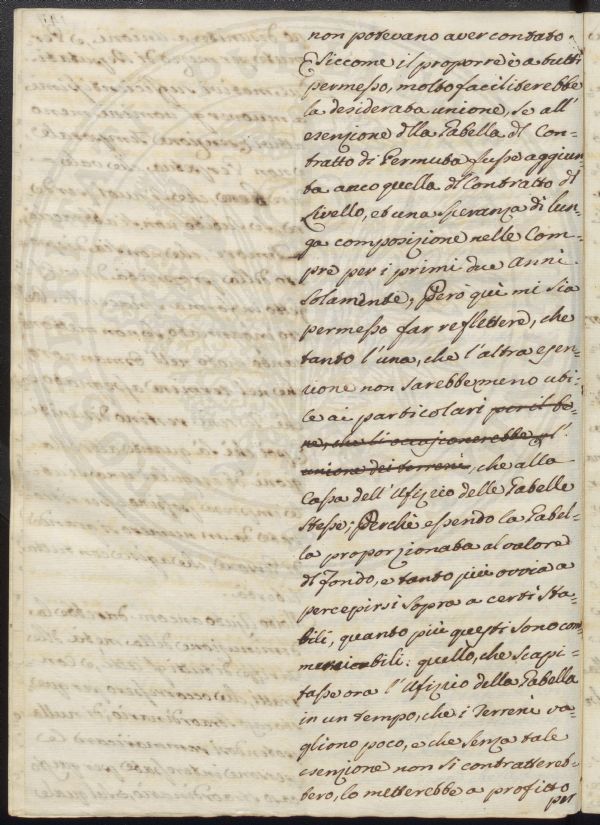 non potevano aver contato.
E siccome il proporre è a tutti
permesso, molto faciliterebbe
la desiderata unione, se all'
esenzione dlla Tabella dl Con-
tratto di Permuta fusse aggiun-
ta anco quella dl Contratto dl
Livello, et una speranza di lun-
ga composizione nelle Com-
pre per i primi due Anni
solamente; Però quì mi sia
permesso far reflettere, che
tanto l'una, che l'altra esen-
zione non sarebbe meno uti-
le ai particolari per il be-
ne, che li occasionerebbe l'
unione dei terreni, che alla
Cassa dell'Ufizio delle Tabelle
stesse; Perchè essendo la Tabel-
la proporzionata al valore
dl fondo, e tanto più ovvia a
percepirsi sopra a certi sta-
bili, quanto più questi sono com-
merciabili: quello, che scapi-
tasse ora l'Ufizio della Tabella
in un tempo, che i Terreni va-
gliono poco, e che senza tale
esenzione non si contratereb-
bero, lo metterebbe a profitto
per